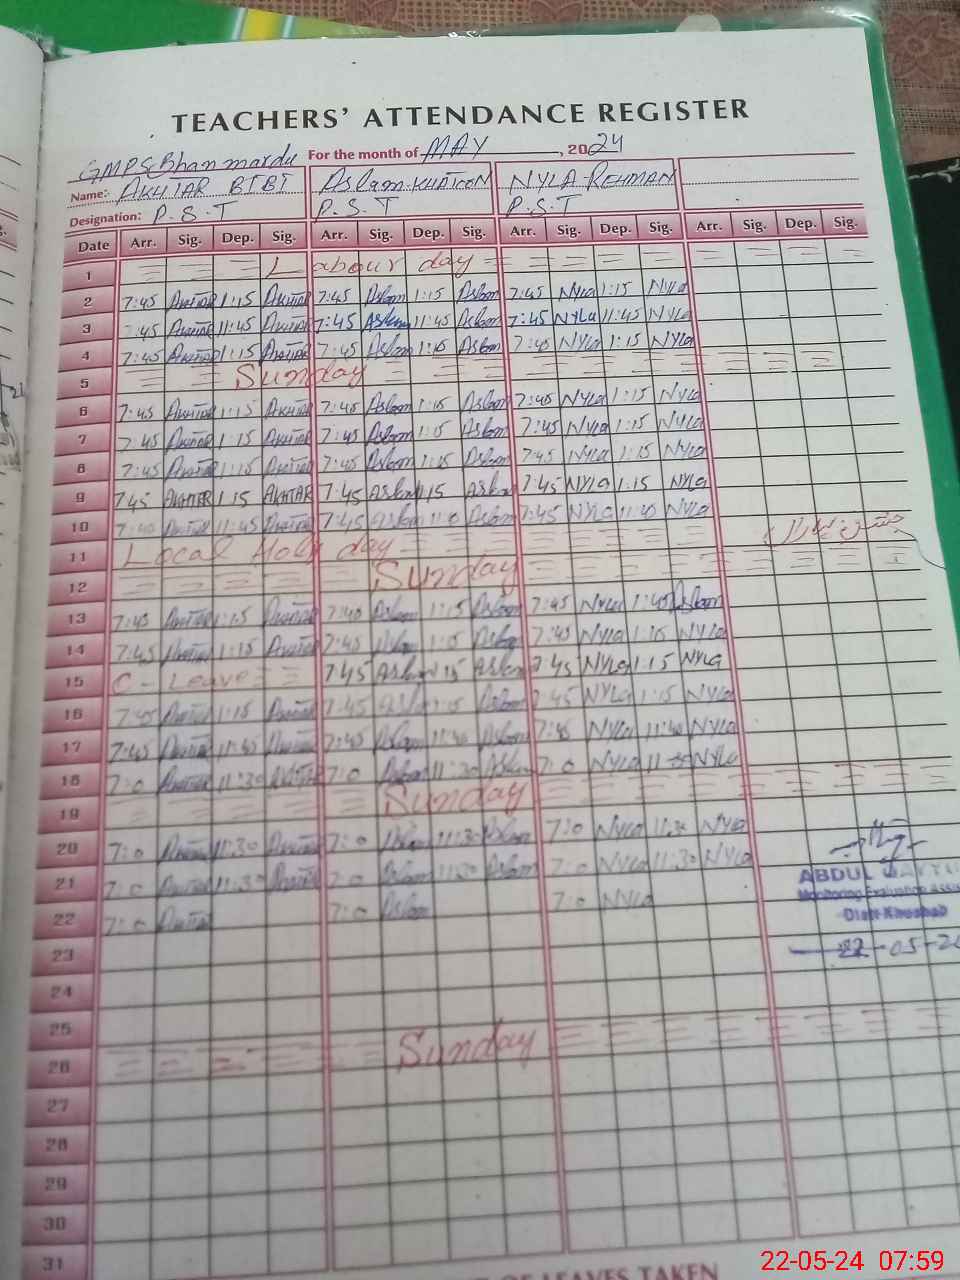 TEACHERS' ATTENDANCE REGISTER
GMPS Bhanmardu For the month of MAY, 2024
Name: AKHTAR BIBI Aslam KHATOON NYLA REHMAN
Designation: P.S.T P.S.T P.S.T
Date Arr. Sig. Dep. Sig. Arr. Sig. Dep. Sig. Arr. Sig. Dep. Sig. Arr. Sig. Dep. Sig.
1 Labour day
2 7:45 AKHTAR 1:15 AKHTAR 7:45 Aslam 1:15 Aslam 7:45 Nyla 1:15 NYLA
3 7:45 AKHTAR 11:45 AKHTAR 7:45 Aslam 11:45 Aslam 7:45 NYLa 11:45 NYLa
4 7:45 AKHTAR 1:15 AKHTAR 7:45 Aslam 1:15 Aslam 7:45 NYLa 1:15 NYLa
5 Sunday
6 7:45 AKHTAR 1:15 AKHTAR 7:45 Aslam 1:15 Aslam 7:45 NYLa 1:15 NYLa
7 7:45 AKHTAR 1:15 AKHTAR 7:45 Aslam 1:15 Aslam 7:45 NYLa 1:15 NYLa
8 7:45 AKHTAR 1:15 AKHTAR 7:45 Aslam 1:15 Aslam 7:45 NYLa 1:15 NYLa
9 745 AKHTER 1:15 AKHTAR 7:45 Aslam 15 Aslam 7:45 NYLa 1:15 NYLa
10 AKHTAR 11:45 AKHTAR 7:45 Aslam Aslam 7:45 NYLa 11:40 NYLa
11 Local Holy day
12 Sunday
13 7:45 AKHTAR 1:15 AKHTAR 7:40 Aslam 1:15 Aslam 7:45 NYLa 1:45 Aslam
14 7:45 AKHTAR 1:15 AKHTAR 7:45 1:15 Aslam 7:45 NYLa 1:15 NYLa
15 C - Leave 7:45 Aslam 15 Aslam 7:45 NYLa 1:15 NYLA
16 7:45 AKHTAR 1:15 AKHTAR 7:45 Aslam 1:15 Aslam 7:45 NYLa 1:15 NYLa
17 7:45 AKHTAR 11:45 AKHTAR 7:45 Aslam 11:40 Aslam 7:45 NYLa 11:40 NYLa
18 7:0 AKHTAR 11:30 AKHTAR 7:0 Aslam 11:30 Aslam 7:0 NYLa NYLa
19 Sunday
20 7:0 AKHTAR 11:30 AKHTAR 7:0 Aslam 11:30 Aslam 7:0 NYLa 11:30 NYLa
21 7:0 AKHTAR 11:30 AKHTAR 7:0 Aslam 11:30 Aslam 7:0 NYLa 11:30 NYLa
ABDUL
Monitoring Evaluation
22 7:0 AKHTAR 7:0 Aslam 7:0 NYLa
Distt Khushab
23 22-05-20
24
25
26 Sunday
27
28
29
30
31
OF LEAVES TAKEN
22-05-24 07:59